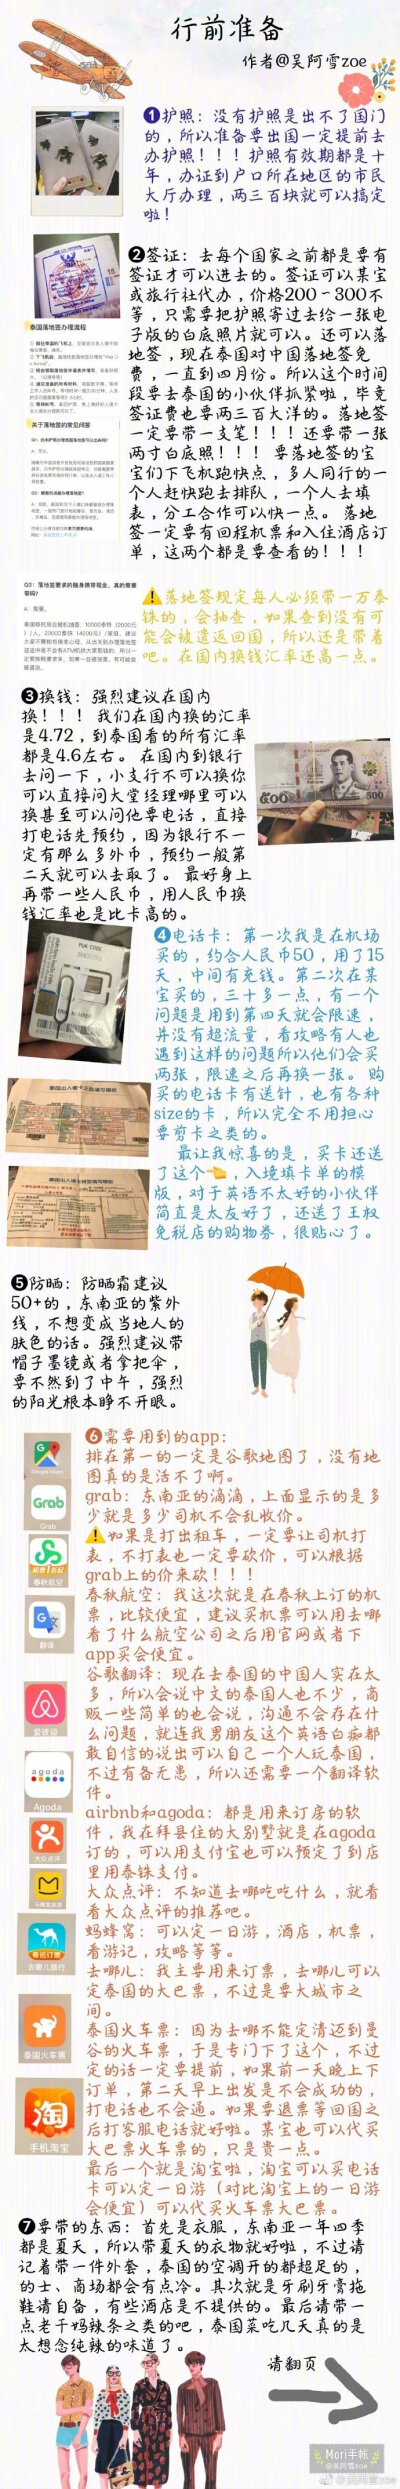 行前准备
作者@吴阿雪zoe
❶护照：没有护照是出不了国门
的，所以准备要出国一定提前去
办护照！！！护照有效期都是十
年，办证到户口所在地区的市民
大厅办理，两三百块就可以搞定
啦！
❷签证：去每个国家之前都是要有
签证才可以进去的。签证可以某宝
或旅行社代办，价格200～300不
等，只需要把护照寄过去给一张电
子版的白底照片就可以。还可以落
地签，现在泰国对中国落地签免
费，一直到四月份。所以这个时间
段要去泰国的小伙伴抓紧啦，毕竟
签证费也要两三百大洋的。落地签
一定要带一支笔！！！还要带一张
两寸白底照！！！ 要落地签的宝
宝们下飞机跑快点，多人同行的一
个人赶快跑去排队，一个人去填
表，分工合作可以快一点。 落地
签一定要有回程机票和入住酒店订
单，这两个都是要查看的！！！
泰国落地签办理流程
关于落地签的常见问答
Q3：落地签要求的随身携带现金，真的需要
带吗？
A：需要。
⚠️落地签规定每人必须带一万泰
铢的，会抽查，如果查到没有可
能会被遣返回国，所以还是带着
吧。在国内换钱汇率还高一点。
❸换钱：强烈建议在国内
换！！！ 我们在国内换的汇率
是4.72，到泰国看的所有汇率
都是4.6左右。 在国内到银行
去问一下，小支行不可以换你
可以直接问大堂经理哪里可以
换甚至可以问他要电话，直接
打电话先预约，因为银行不一
定有那么多外币，预约一般第
二天就可以去取了。 最好身上
再带一些人民币，用人民币换
钱汇率也是比卡高的。
500
500
PUK CODE
❹电话卡：第一次我是在机场
买的，约合人民币50，用了15
天，中间有充钱。第二次在某
宝买的，三十多一点，有一个
问题是用到第四天就会限速，
并没有超流量，看攻略有人也
遇到这样的问题所以他们会买
两张，限速之后再换一张。 购
买的电话卡有送针，也有各种
size的卡，所以完全不用担心
要剪卡之类的。
最让我惊喜的是，买卡还送
了这个👈，入境填卡单的模
版，对于英语不太好的小伙伴
简直是太友好了，还送了王权
免税店的购物券，很贴心了。
泰国出入境卡正面填写模板
泰国出入境卡背面填写模板
❺防晒：防晒霜建议
50+的，东南亚的紫外
线，不想变成当地人的
肤色的话。强烈建议带
帽子墨镜或者拿把伞，
要不然到了中午，强烈
的阳光根本睁不开眼。
❻需要用到的app：
排在第一的一定是谷歌地图了，没有地
图真的是活不了啊。
grab：东南亚的滴滴，上面显示的是多
少就是多少司机不会乱收价。
⚠️如果是打出租车，一定要让司机打
表，不打表也一定要砍价，可以根据
grab上的价来砍！！！
春秋航空：我这次就是在春秋上订的机
票，比较便宜，建议买机票可以用去哪
看了什么航空公司之后用官网或者下
app买会便宜。
谷歌翻译：现在去泰国的中国人实在太
多，所以会说中文的泰国人也不少，商
贩一些简单的也会说，沟通不会存在什
么问题，就连我男朋友这个英语白痴都
敢自信的说出可以自己一个人玩泰国，
不过有备无患，所以还需要一个翻译软
件。
airbnb和agoda：都是用来订房的软
件，我在拜县住的大别墅就是在agoda
订的，可以用支付宝也可以预定了到店
里用泰铢支付。
大众点评：不知道去哪吃吃什么，就看
看大众点评的推荐吧。
蚂蜂窝：可以定一日游，酒店，机票，
看游记，攻略等等。
去哪儿：我主要用来订票，去哪儿可以
定泰国的大巴票，不过是要大城市之
间。
泰国火车票：因为去哪不能定清迈到曼
谷的火车票，于是专门下了这个，不过
定的话一定要提前，如果前一天晚上下
订单，第二天早上出发是不会成功的，
打电话也不会通。如果要退票等回国之
后打客服电话就好啦。某宝也可以代买
大巴票火车票的，只是贵一点。
最后一个就是淘宝啦，淘宝可以买电话
卡可以定一日游（对比淘宝上的一日游
会便宜）可以代买火车票大巴票。
Google Maps
Grab
Grab
春秋航空
翻译
爱彼迎
agoda
Agoda
大众点评
春运订票
去哪儿旅行
泰国火车票
淘
手机淘宝
❼要带的东西：首先是衣服，东南亚一年四季
都是夏天，所以带夏天的衣物就好啦，不过请
记着带一件外套，泰国的空调开的都超足的，
的士、商场都会有点冷。其次就是牙刷牙膏拖
鞋请自备，有些酒店是不提供的。最后请带一
点老干妈辣条之类的吧，泰国菜吃几天真的是
太想念纯辣的味道了。
请翻页
Mori手帐
@吴阿雪zoe
@吴阿雪zoe